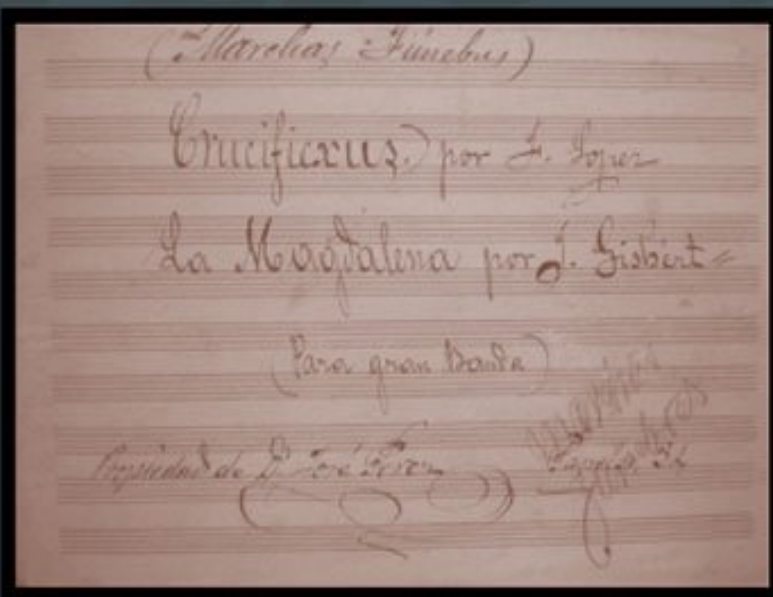 (Marchas Fúnebres)
Crucifixus.) por F. Lopez
La Magdalena por J. Gisbert =
(Para gran Banda)
Propiedad de D. José Perez